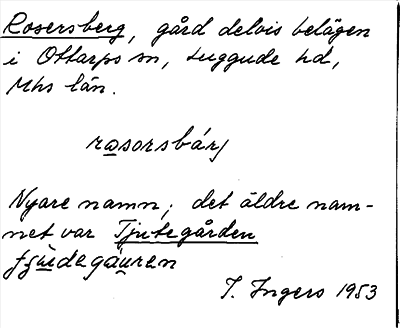 Rosersberg, gård delvis belägen
i Ottarps sn, Luggude hd,
Mhs län.
rosorsbárj
Nyare namn; det äldre nam-
net var Tjutegården
I. Ingers 1953